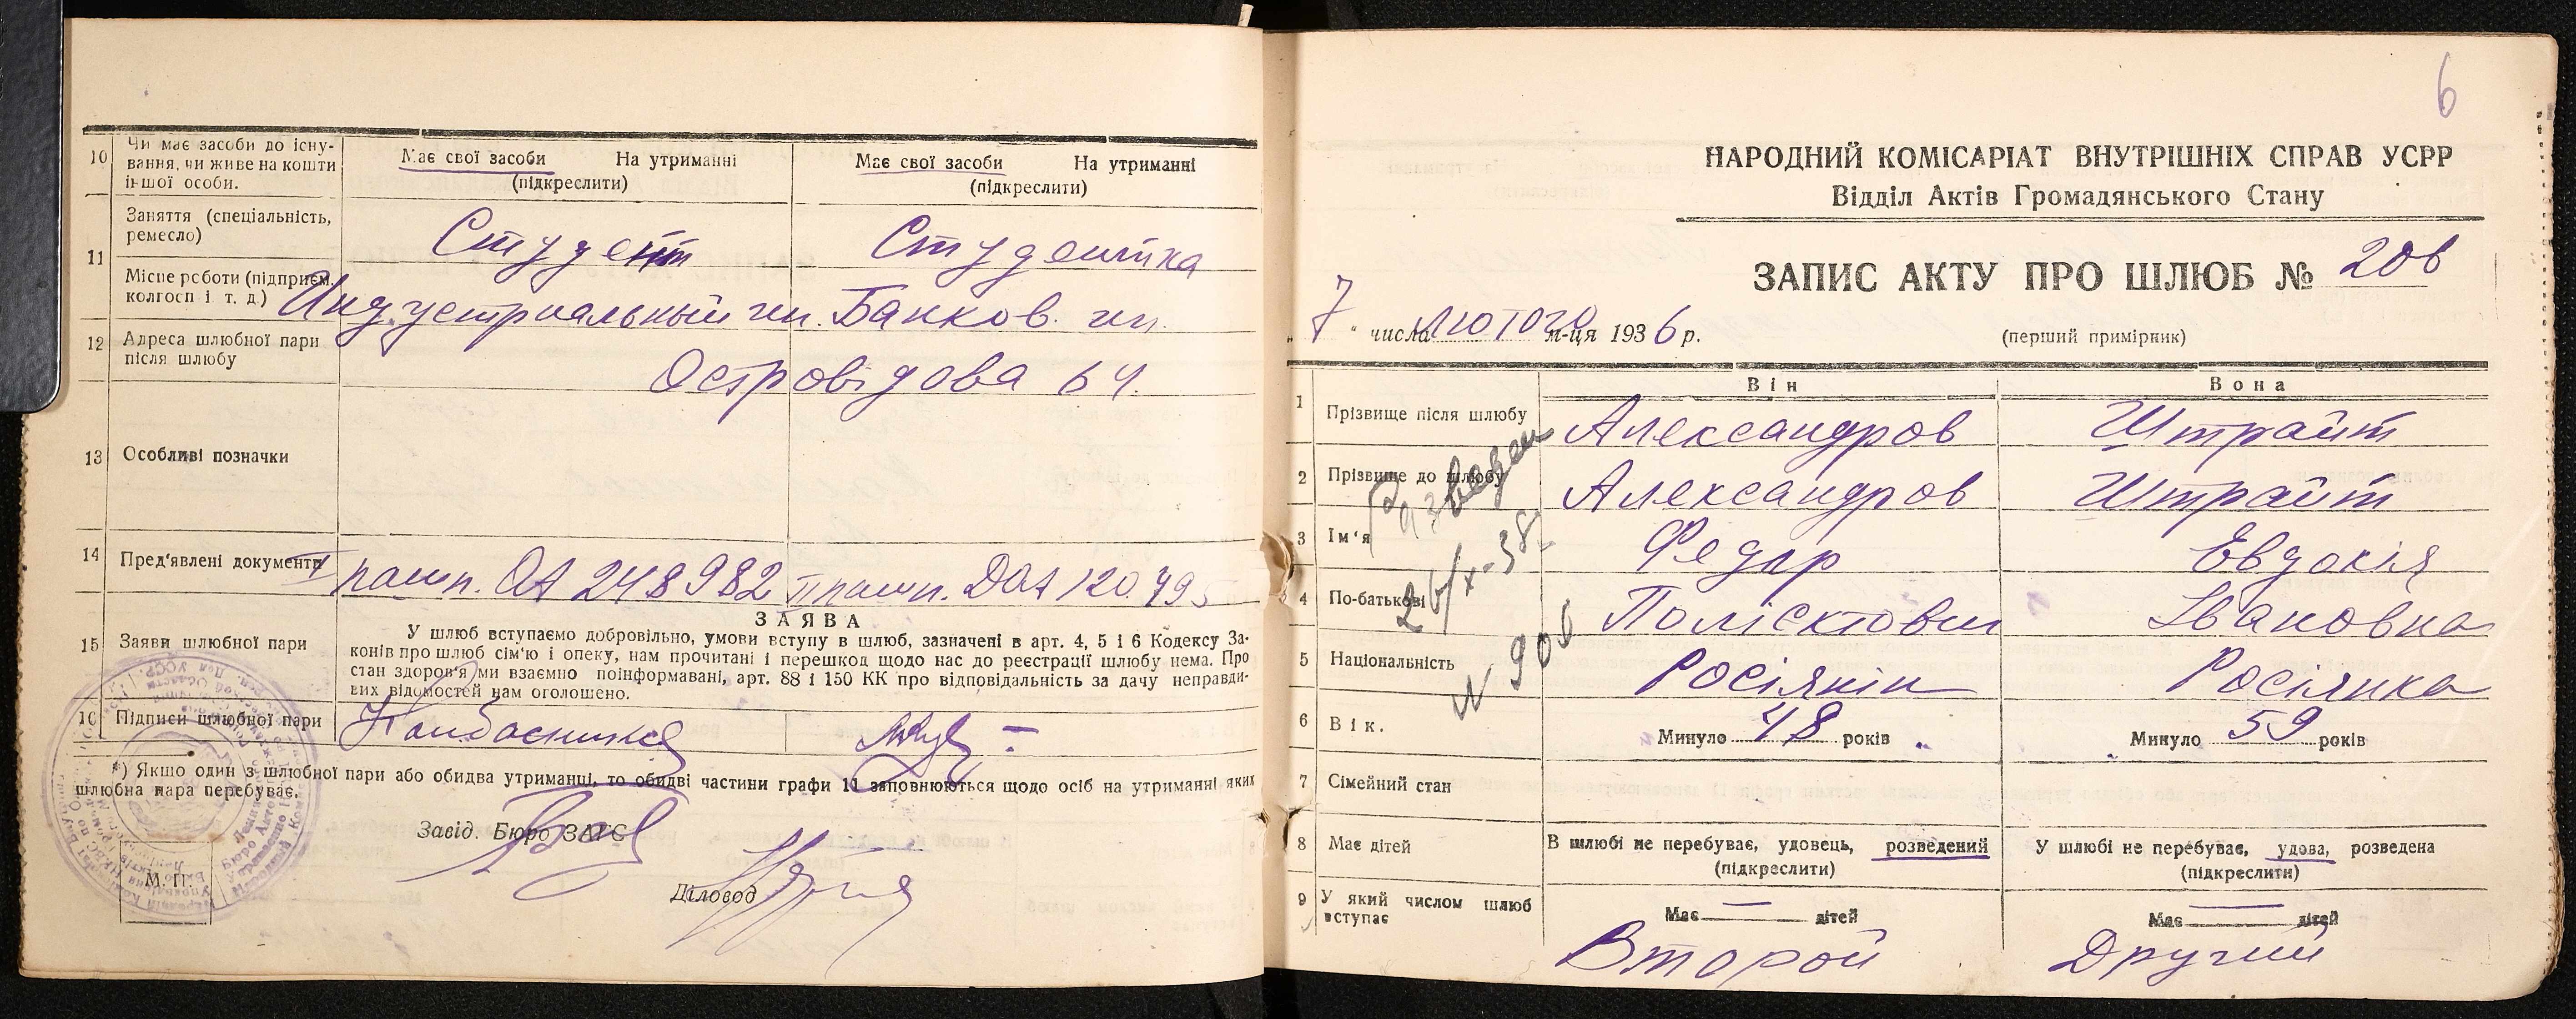 10 Чи має засоби до існування, чи живе на кошти іншої особи.
Має свої засоби На утриманні
(підкреслити)
Має свої засоби На утриманні
(підкреслити)
11 Заняття (спеціальність, ремесло)
Студент
Студентка
Місце роботи (підприєм. колгосп і т. д.)
Индустриальный ин.
Банков. ин.
12 Адреса шлюбної пари після шлюбу
Островідова 64.
13 Особливі позначки
14 Пред'явлені документи
I пашп. ОА 248982
II пашп. DOA
15 Заяви шлюбної пари
ЗАЯВА
У шлюб вступаємо добровільно, умови вступу в шлюб, зазначені в арт. 4, 5 і 6 Кодексу За-
конів про шлюб сім'ю і опеку, нам прочитані і перешкод щодо нас до реєстрації шлюбу нема. Про
стан здоров'я ми взаємно поінформавані, арт. 88 і 150 КК про відповідальність за дачу неправди-
вих відомостей нам оголошено.
16 Підписи шлюбної пари
*) Якщо один з шлюбної пари або обидва утриманці, то обидві частини графи 11 заповнюються щодо осіб на утриманні яких
шлюбна пара перебуває.
Завід. Бюро ЗАГС
Діловод
М. П.
6
НАРОДНИЙ КОМІСАРІАТ ВНУТРІШНІХ СПРАВ УСРР
Відділ Актів Громадянського Стану
ЗАПИС АКТУ ПРО ШЛЮБ № 206
„7" числа лютого м-ця 1936 р.
(перший примірник)
Він
Вона
1 Прізвище після шлюбу
Александров
Штрайт
2 Прізвище до шлюбу
Александров
Штрайт
3 Ім'я
Федор
Евдокія
4 По-батькові
Поліектович
Івановна
5 Національність
Росіянін
Росіянка
6 Вік.
Минуло 48 років
Минуло 59 років
7 Сімейний стан
8 Має дітей
В шлюбі не перебуває, удовець, розведений
(підкреслити)
У шлюбі не перебуває, удова, розведена
(підкреслити)
9 У який числом шлюб вступає
Має — дітей
Має — дітей
Второй
Другий
Разведен
26/X-38г.
N 906